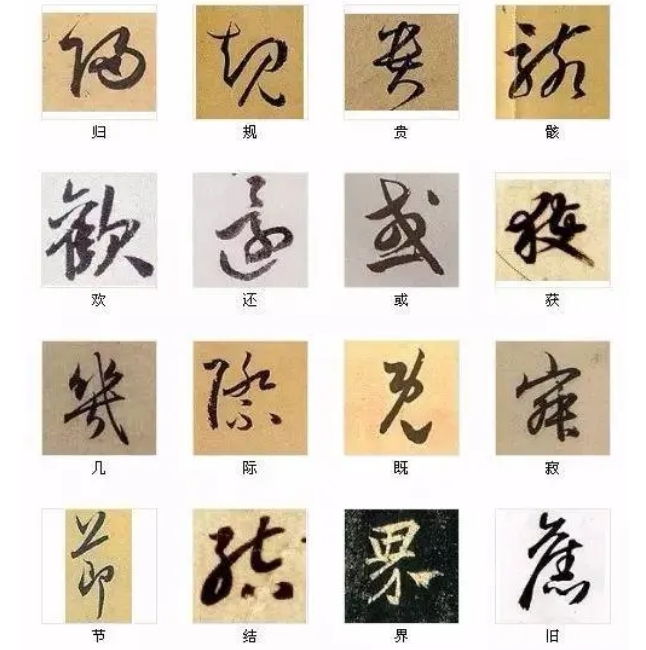 归 规 贵 骸
欢 还 或 获
几 际 既 寂
节 结 界 旧